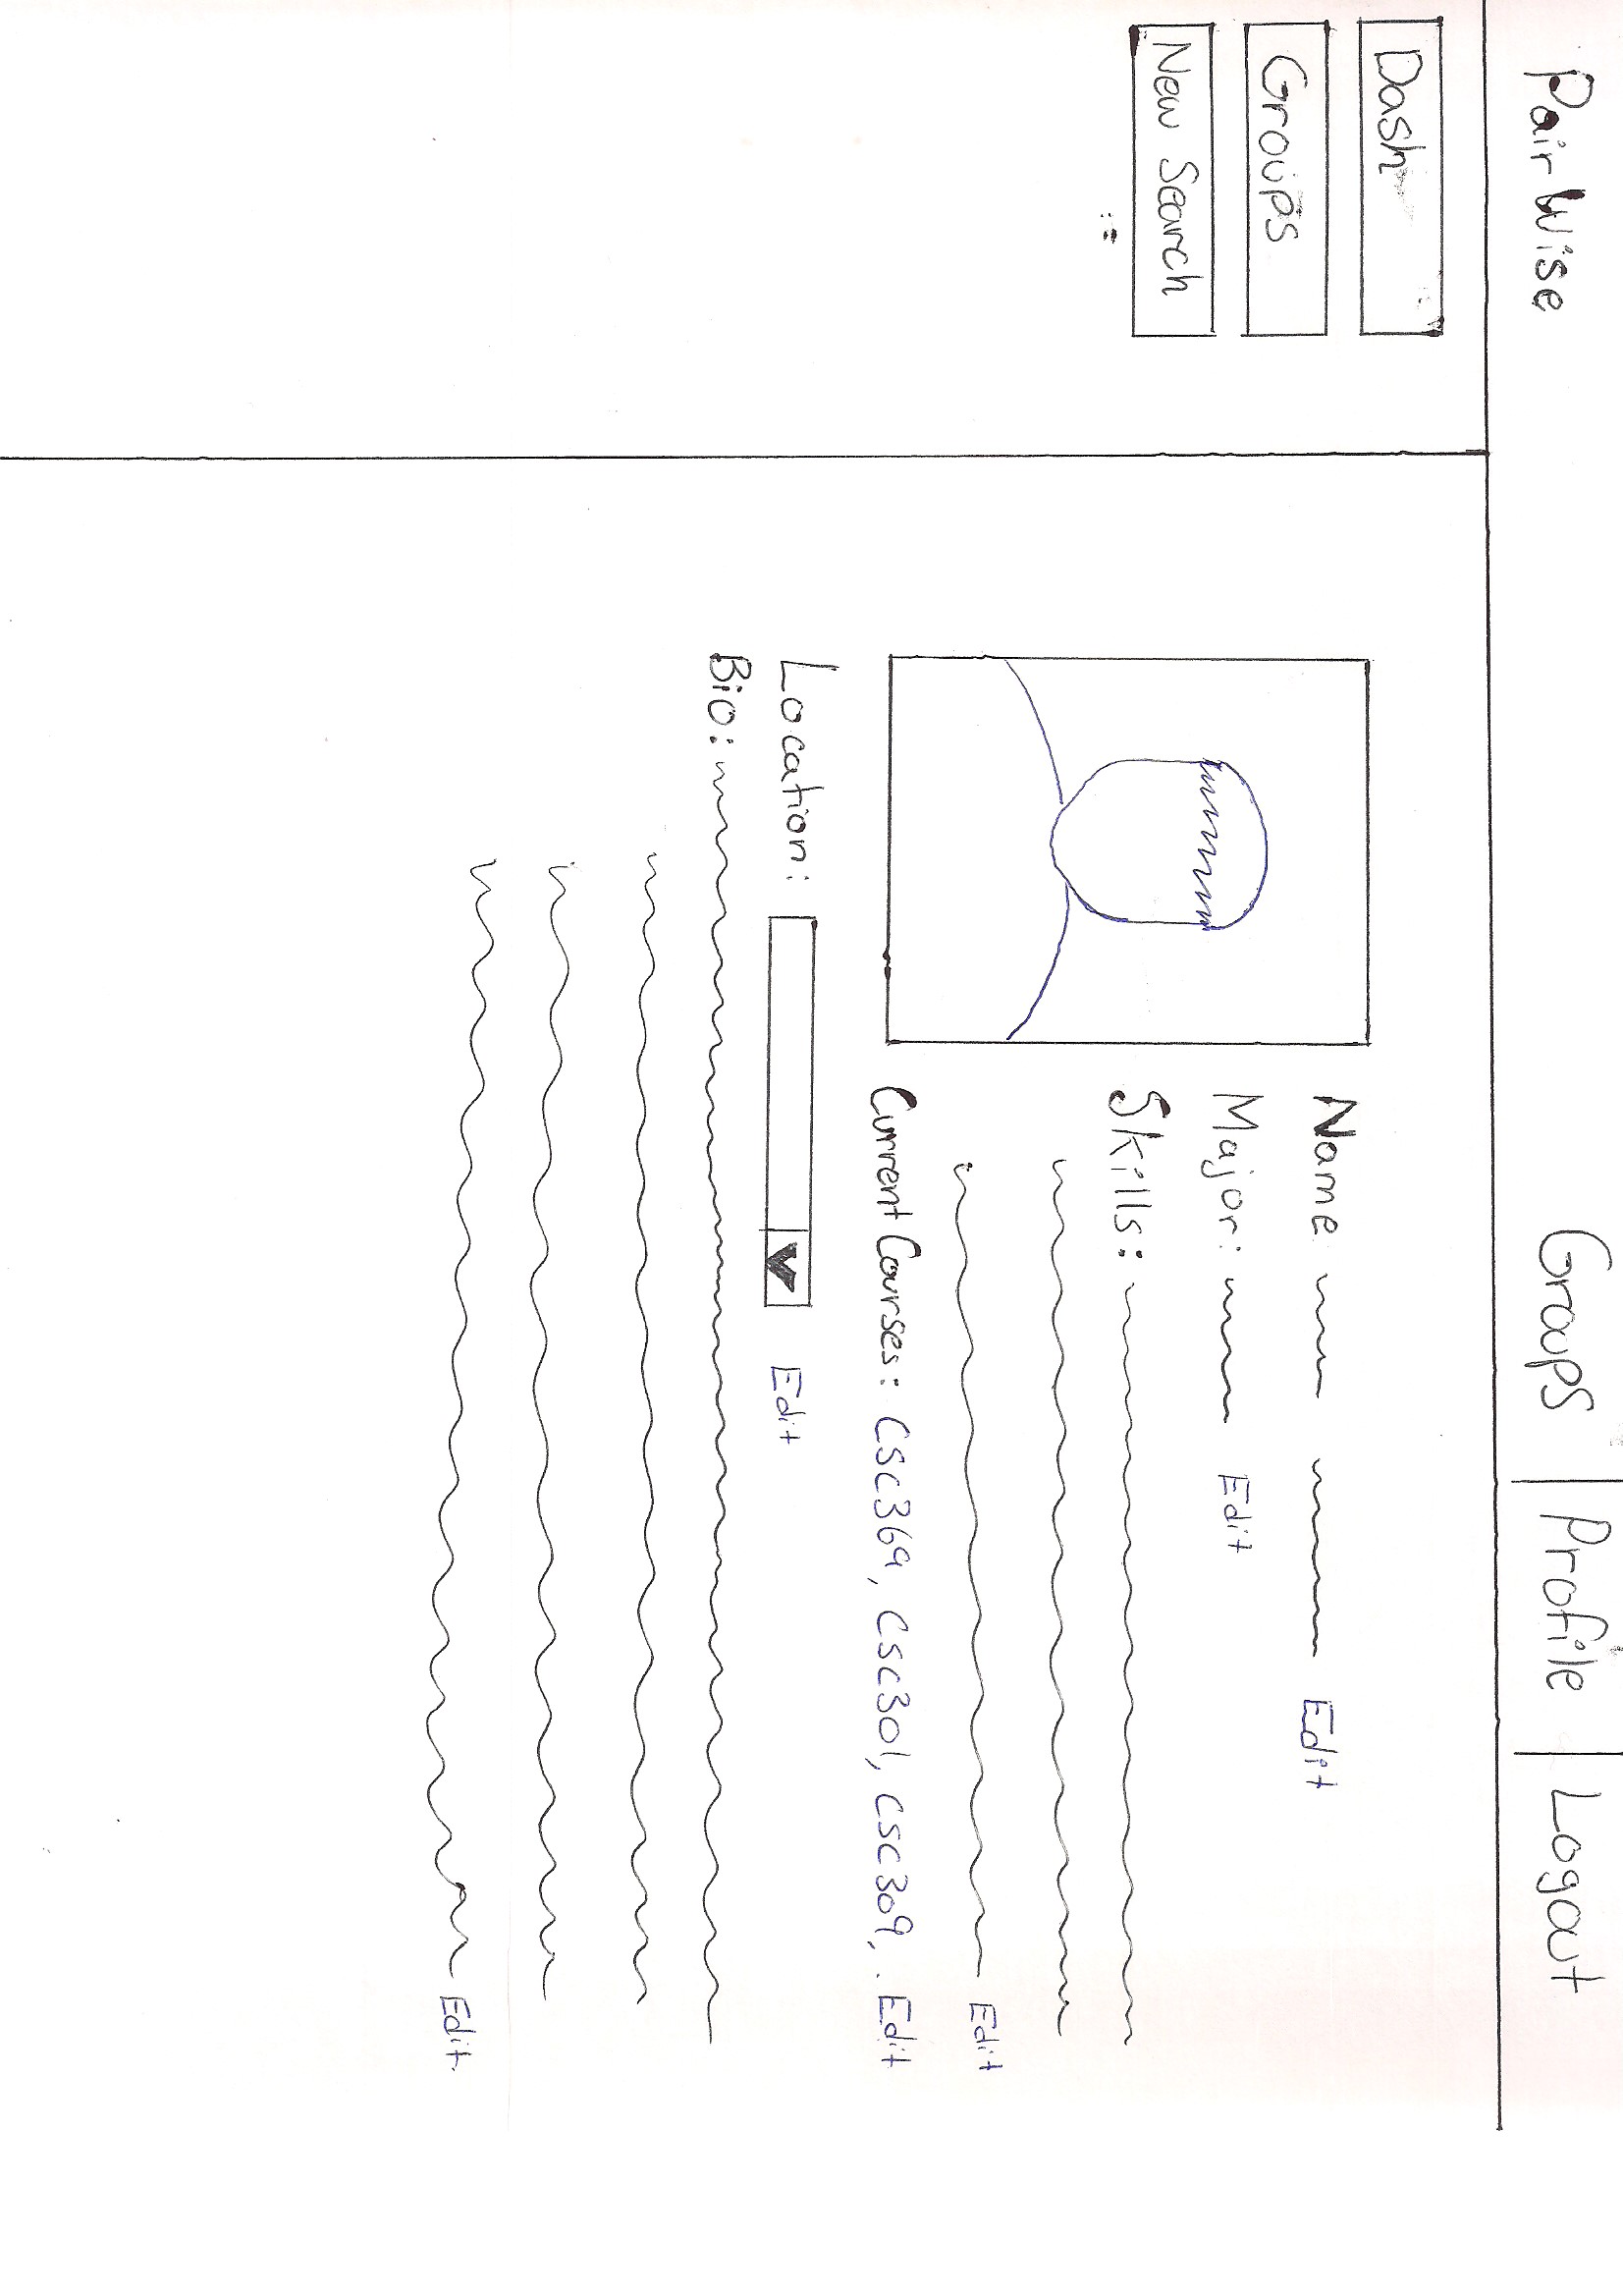 PairWise
Groups Profile Logout
Dash
Groups
New Search
Name Edit
Major: Edit
Skills:
Edit
Current Courses: CSC369, CSC301, CSC309, . Edit
Location: Edit
Bio:
Edit.